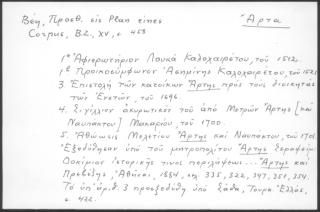 Βέη, Προσθ. εἰς Plan eines
Corpus, B.Z., XV, σ. 458
Ἄρτα
1. Ἀφιερωτήριον Λουκᾶ Καλοχαιρέτου, τοῦ 1512.
1. Προικοσύμφωνον Ἀσημίνης Καλοχαιρέτου, τοῦ 1521.
3. Ἐπιστολὴ τῶν κατοίκων Ἄρτης πρὸς τοὺς διοικητὰς
τῶν Ἐνετῶν, τοῦ 1696.
4. Σιγίλλιον ἀκυρωτικὸν τοῦ ἀπὸ Μετρῶν Ἄρτης [καὶ
Ναυπάκτου] Μακαρίου, τοῦ 1700.
5. Ἀθώωσις Μελετίου Ἄρτης καὶ Ναυπάκτου, τοῦ 1701.
Ἐξεδόθησαν ὑπὸ τοῦ μητροπολίτου Ἄρτης Σεραφείμ
Δοκίμιον ἱστορικῆς τινος περιλήψεως... Ἄρτης καὶ
Πρεβέζης, Ἀθῆναι, 1884, σσ. 335, 322, 347, 351, 354.
Τὸ ὑπ' ἀριθ. 3 προεξεδόθη ὑπὸ Σάθα, Τουρκ. Ἑλλάς,
σ. 422.